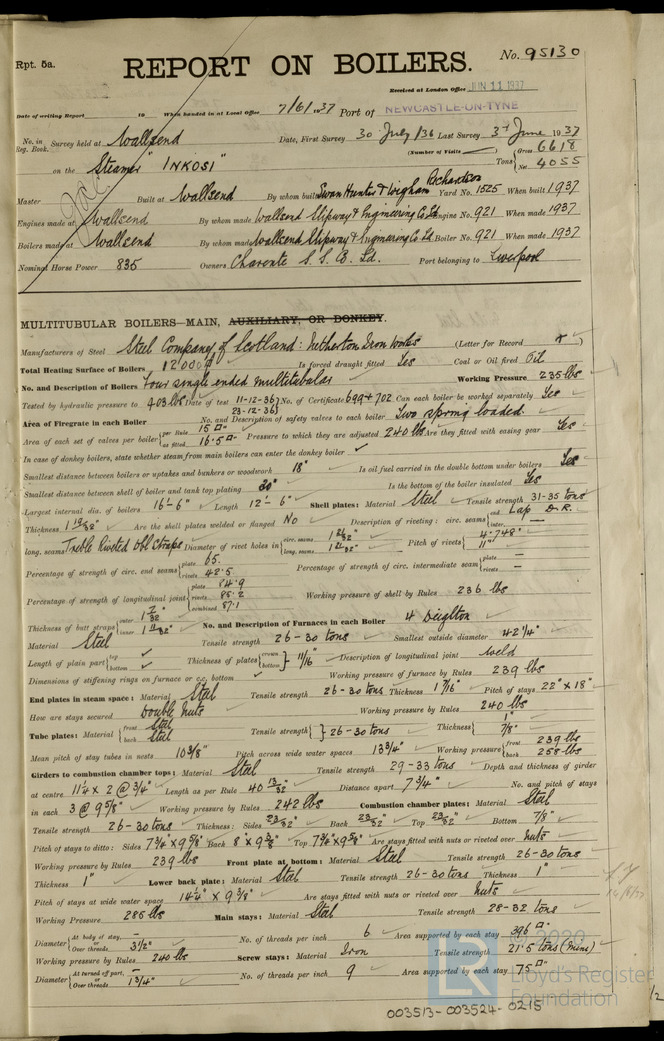 Rpt. 5a.
REPORT ON BOILERS.
No. 95130
Received at London Office JUN 11 1937
Date of writing Report 19 When handed in at Local Office 7/6/1937 Port of NEWCASTLE-ON-TYNE
No. in Reg. Book. Survey held at Wallsend Date, First Survey 30 July /36 Last Survey 3rd June 1937
(Number of Visits )
on the Steamer "INKOSI" Tons { Gross 6618 Net 4055
Master Built at Wallsend By whom built Swan Hunter & Wigham Richardson Yard No. 1525 When built 1937
Engines made at Wallsend By whom made Wallsend Slipway & Engineering Co Ld Engine No. 921 When made 1937
Boilers made at Wallsend By whom made Wallsend Slipway & Engineering Co Ld Boiler No. 921 When made 1937
Nominal Horse Power 835 Owners Charente S. S. Co. Ld. Port belonging to Liverpool
MULTITUBULAR BOILERS—MAIN, AUXILIARY, OR DONKEY.
Manufacturers of Steel Steel Company of Scotland: Netherton Iron Works (Letter for Record )
Total Heating Surface of Boilers 12000 Is forced draught fitted Yes Coal or Oil fired Oil
No. and Description of Boilers Four single ended multitubular Working Pressure 235 lbs
Tested by hydraulic pressure to 403 lbs Date of test 11-12-36 23-12-36 No. of Certificate 699 + 702 Can each boiler be worked separately Yes
Area of Firegrate in each Boiler No. and Description of safety valves to each boiler Two spring loaded
Area of each set of valves per boiler { per Rule 15 □" as fitted 16.5 □" Pressure to which they are adjusted 240 lbs Are they fitted with easing gear Yes
In case of donkey boilers, state whether steam from main boilers can enter the donkey boiler ✓
Smallest distance between boilers or uptakes and bunkers or woodwork 18" Is oil fuel carried in the double bottom under boilers Yes
Smallest distance between shell of boiler and tank top plating 30" Is the bottom of the boiler insulated Yes
Largest internal dia. of boilers 16'-6" Length 12'-6" Shell plates: Material Steel Tensile strength 31-35 tons
Thickness 1 19/32" Are the shell plates welded or flanged No Description of riveting: circ. seams { end Lap D.R. inter. —
long. seams Treble Riveted Dbl Straps Diameter of rivet holes in { circ. seams 1 21/32" long. seams 1 21/32" Pitch of rivets { 4.748" 11"
Percentage of strength of circ. end seams { plate 65. rivets 42.5 Percentage of strength of circ. intermediate seam { plate — rivets —
Percentage of strength of longitudinal joint { plate 84.9 rivets 85.2 combined 87.1 Working pressure of shell by Rules 236 lbs
Thickness of butt straps { outer 1 7/32" inner 1 11/32" No. and Description of Furnaces in each Boiler 4 Deighton
Material Steel Tensile strength 26-30 tons Smallest outside diameter 42 1/4"
Length of plain part { top ✓ bottom ✓ Thickness of plates { crown bottom } 11/16" Description of longitudinal joint weld
Dimensions of stiffening rings on furnace or c.c. bottom ✓ Working pressure of furnace by Rules 239 lbs
End plates in steam space: Material Steel Tensile strength 26-30 tons Thickness 1 7/16" Pitch of stays 22" x 18"
How are stays secured Double nuts Working pressure by Rules 240 lbs
Tube plates: Material { front Steel back Steel Tensile strength { } 26-30 tons Thickness { 1" 7/8"
Mean pitch of stay tubes in nests 10 3/8" Pitch across wide water spaces 13 3/4" Working pressure { front 239 lbs back 258 lbs
Girders to combustion chamber tops: Material Steel Tensile strength 29-33 tons Depth and thickness of girder
at centre 11 1/4 x 2 @ 3/4" Length as per Rule 40 13/32" Distance apart 7 3/4" No. and pitch of stays
in each 3 @ 9 5/8" Working pressure by Rules 242 lbs Combustion chamber plates: Material Steel
Tensile strength 26-30 tons Thickness: Sides 23/32" Back 23/32" Top 23/32" Bottom 7/8"
Pitch of stays to ditto: Sides 7 3/4" x 9 5/8" Back 8" x 9 3/8" Top 7 3/4" x 9 5/8" Are stays fitted with nuts or riveted over Nuts
Working pressure by Rules 239 lbs Front plate at bottom: Material Steel Tensile strength 26-30 tons
Thickness 1" Lower back plate: Material Steel Tensile strength 26-30 tons Thickness 1"
Pitch of stays at wide water space 14 1/4" x 9 3/8" Are stays fitted with nuts or riveted over Nuts
Working Pressure 285 lbs Main stays: Material Steel Tensile strength 28-32 tons
Diameter { At body of stay, — or Over threads 3 1/2" No. of threads per inch 6 Area supported by each stay 396 □"
Working pressure by Rules 240 lbs Screw stays: Material Iron Tensile strength 21.5 tons (mine)
Diameter { At turned off part, — or Over threads 1 3/4" No. of threads per inch 9 Area supported by each stay 75 □"
© 2020
Lloyd's Register
Foundation
003513-003524-0215